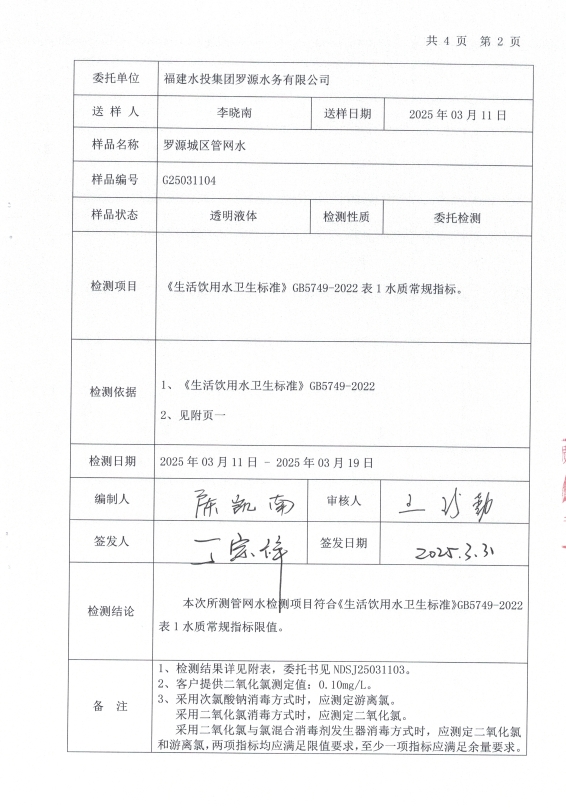 共 4 页 第 2 页
委托单位 福建水投集团罗源水务有限公司
送 样 人 李晓南 送样日期 2025 年 03 月 11 日
样品名称 罗源城区管网水
样品编号 G25031104
样品状态 透明液体 检测性质 委托检测
检测项目 《生活饮用水卫生标准》GB5749-2022 表 1 水质常规指标。
检测依据
1、《生活饮用水卫生标准》GB5749-2022
2、见附页一
检测日期 2025 年 03 月 11 日 - 2025 年 03 月 19 日
编制人 审核人
签发人 签发日期 2025.3.31
检测结论
本次所测管网水检测项目符合《生活饮用水卫生标准》GB5749-2022
表 1 水质常规指标限值。
备 注
1、检测结果详见附表，委托书见 NDSJ25031103。
2、客户提供二氧化氯测定值：0.10mg/L。
3、采用次氯酸钠消毒方式时，应测定游离氯。
采用二氧化氯消毒方式时，应测定二氧化氯。
采用二氧化氯与氯混合消毒剂发生器消毒方式时，应测定二氧化氯
和游离氯，两项指标均应满足限值要求，至少一项指标应满足余量要求。